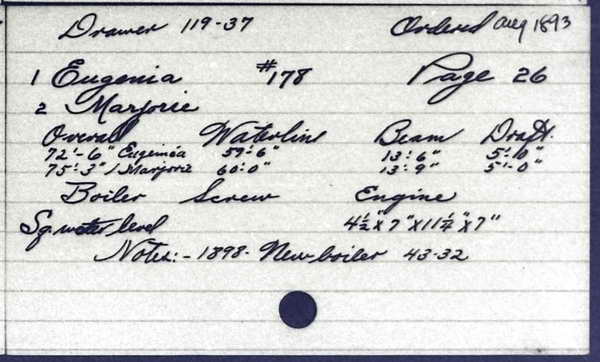 Drawer 119-37 Ordered Aug 1893
1 Eugenia #178 Page 26
2 Marjorie
Overall Waterline Beam Draft.
72'-6" Eugenia 59'-6" 13'6" 5'-10"
75'-3" / Marjorie 60'-0" 13'-9" 5'-0"
Boiler Screw Engine
Sq. water level 4½"x7"x11½"x7"
Notes:- 1898 - New boiler 43-32